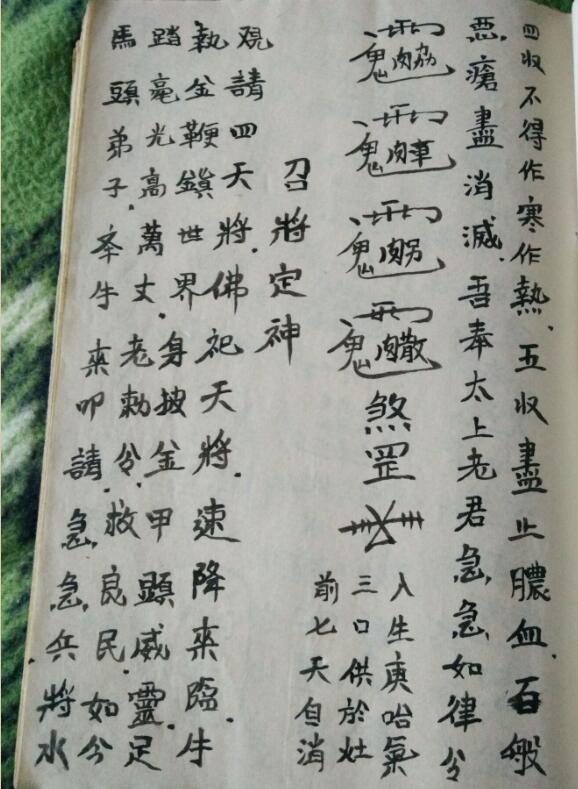 四收不得作寒作熱．五收盡止膿血．百般
惡瘡盡消滅．吾奉太上老君急急如律令
煞罡
入生庚哈氣
三口供於灶
前七天自消
召將定神
覌請四天將．佛祀天將．速降來臨．牛
執金鞭鎮世界身披金甲顯威靈．足
踏毫光高萬丈．老勅令救良民．如令
馬頭弟子．牛來叩請．急．急．兵將水